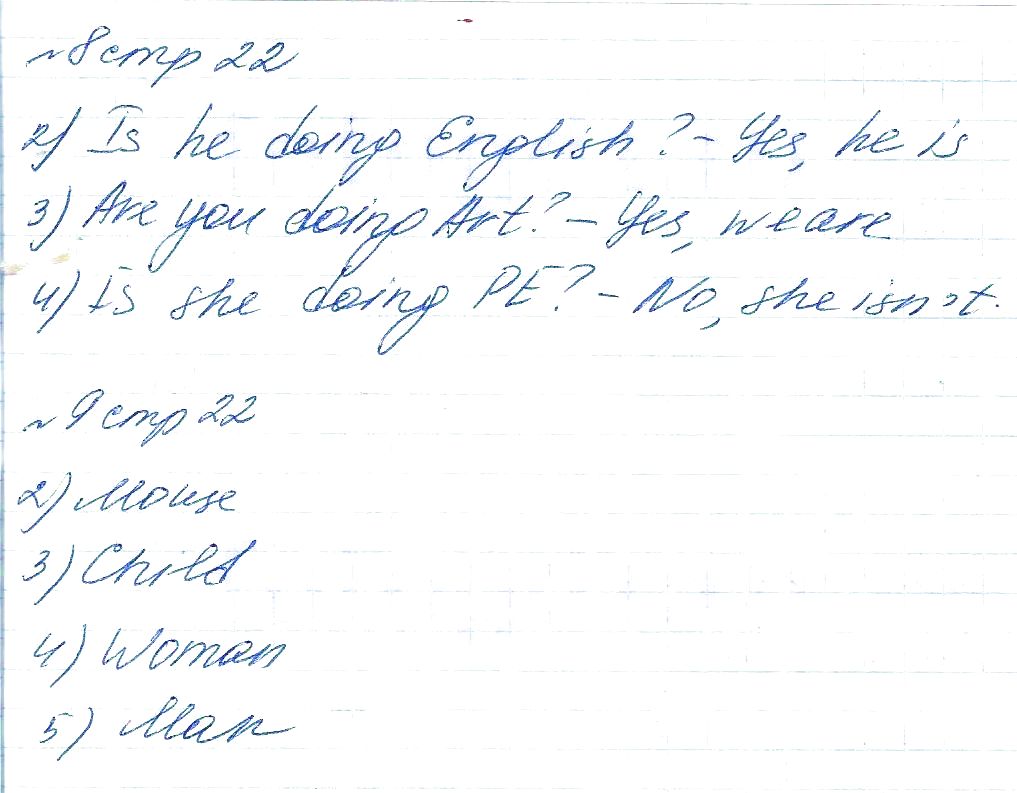 №8 стр 22
2) Is he doing English? - Yes, he is
3) Are you doing Art? - Yes, we are
4) Is she doing PE? - No, she isnot.
№9 стр 22
2) Mouse
3) Child
4) Woman
5) Man